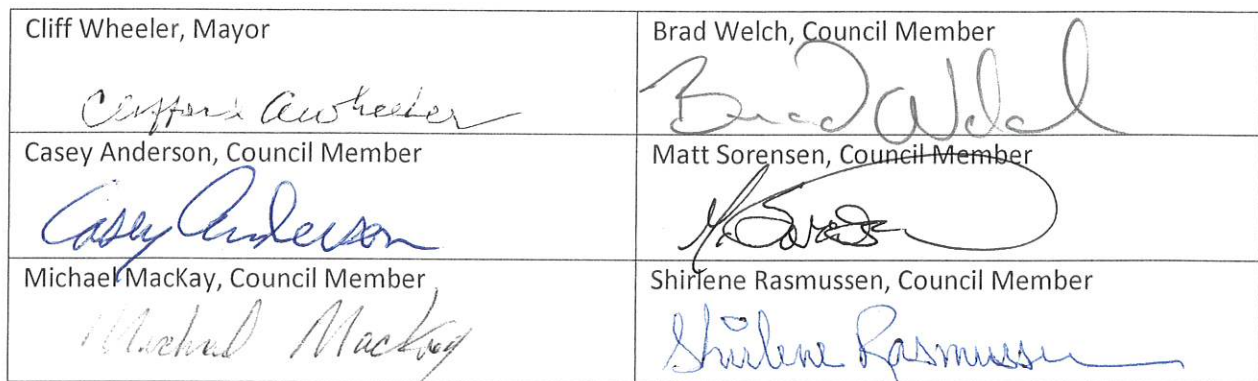 Cliff Wheeler, Mayor
Clifford A Wheeler
Brad Welch, Council Member
Brad Welch
Casey Anderson, Council Member
Casey Anderson
Matt Sorensen, Council Member
M. Sorensen
Michael MacKay, Council Member
Michael MacKay
Shirlene Rasmussen, Council Member
Shirlene Rasmussen